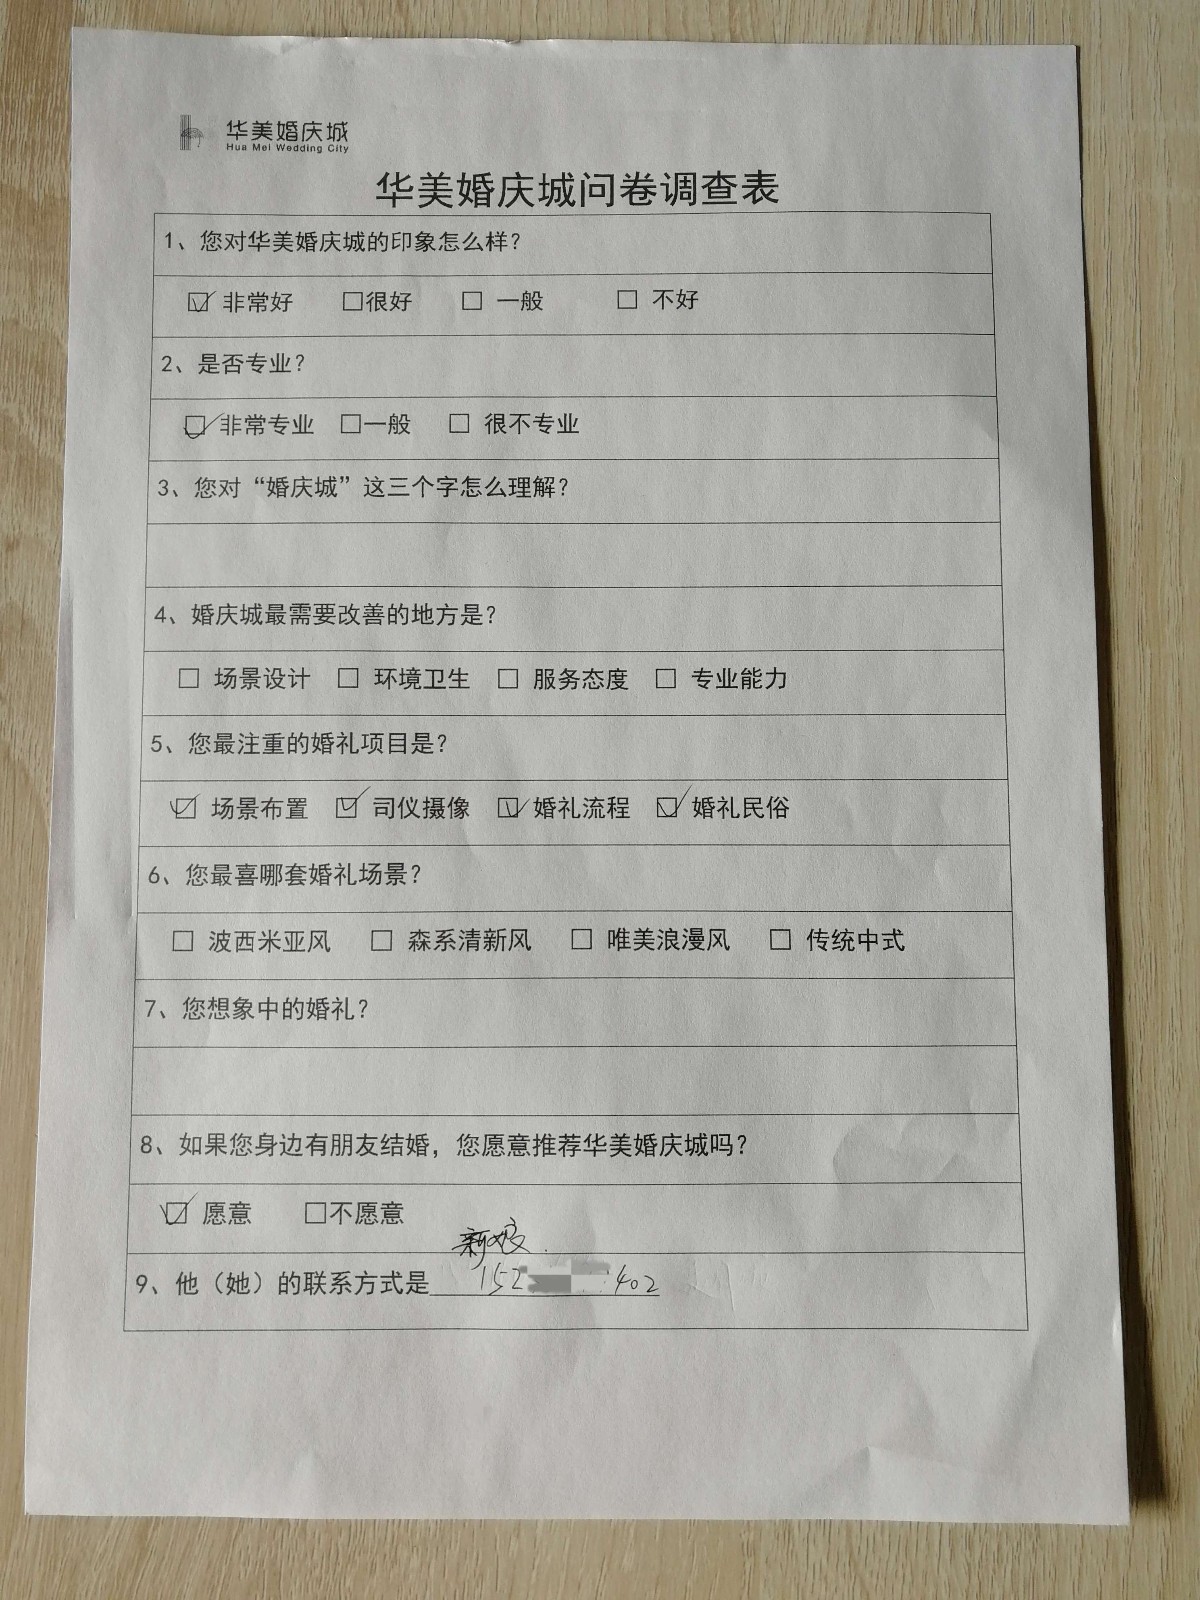 华美婚庆城
Hua Mei Wedding City
华美婚庆城问卷调查表
1、您对华美婚庆城的印象怎么样？
☑ 非常好 □很好 □ 一般 □ 不好
2、是否专业？
☑ 非常专业 □一般 □ 很不专业
3、您对“婚庆城”这三个字怎么理解？
4、婚庆城最需要改善的地方是？
□ 场景设计 □ 环境卫生 □ 服务态度 □ 专业能力
5、您最注重的婚礼项目是？
☑ 场景布置 ☑ 司仪摄像 ☑ 婚礼流程 ☑ 婚礼民俗
6、您最喜哪套婚礼场景？
□ 波西米亚风 □ 森系清新风 □ 唯美浪漫风 □ 传统中式
7、您想象中的婚礼？
8、如果您身边有朋友结婚，您愿意推荐华美婚庆城吗？
☑ 愿意 □不愿意
新娘
9、他（她）的联系方式是 152 402